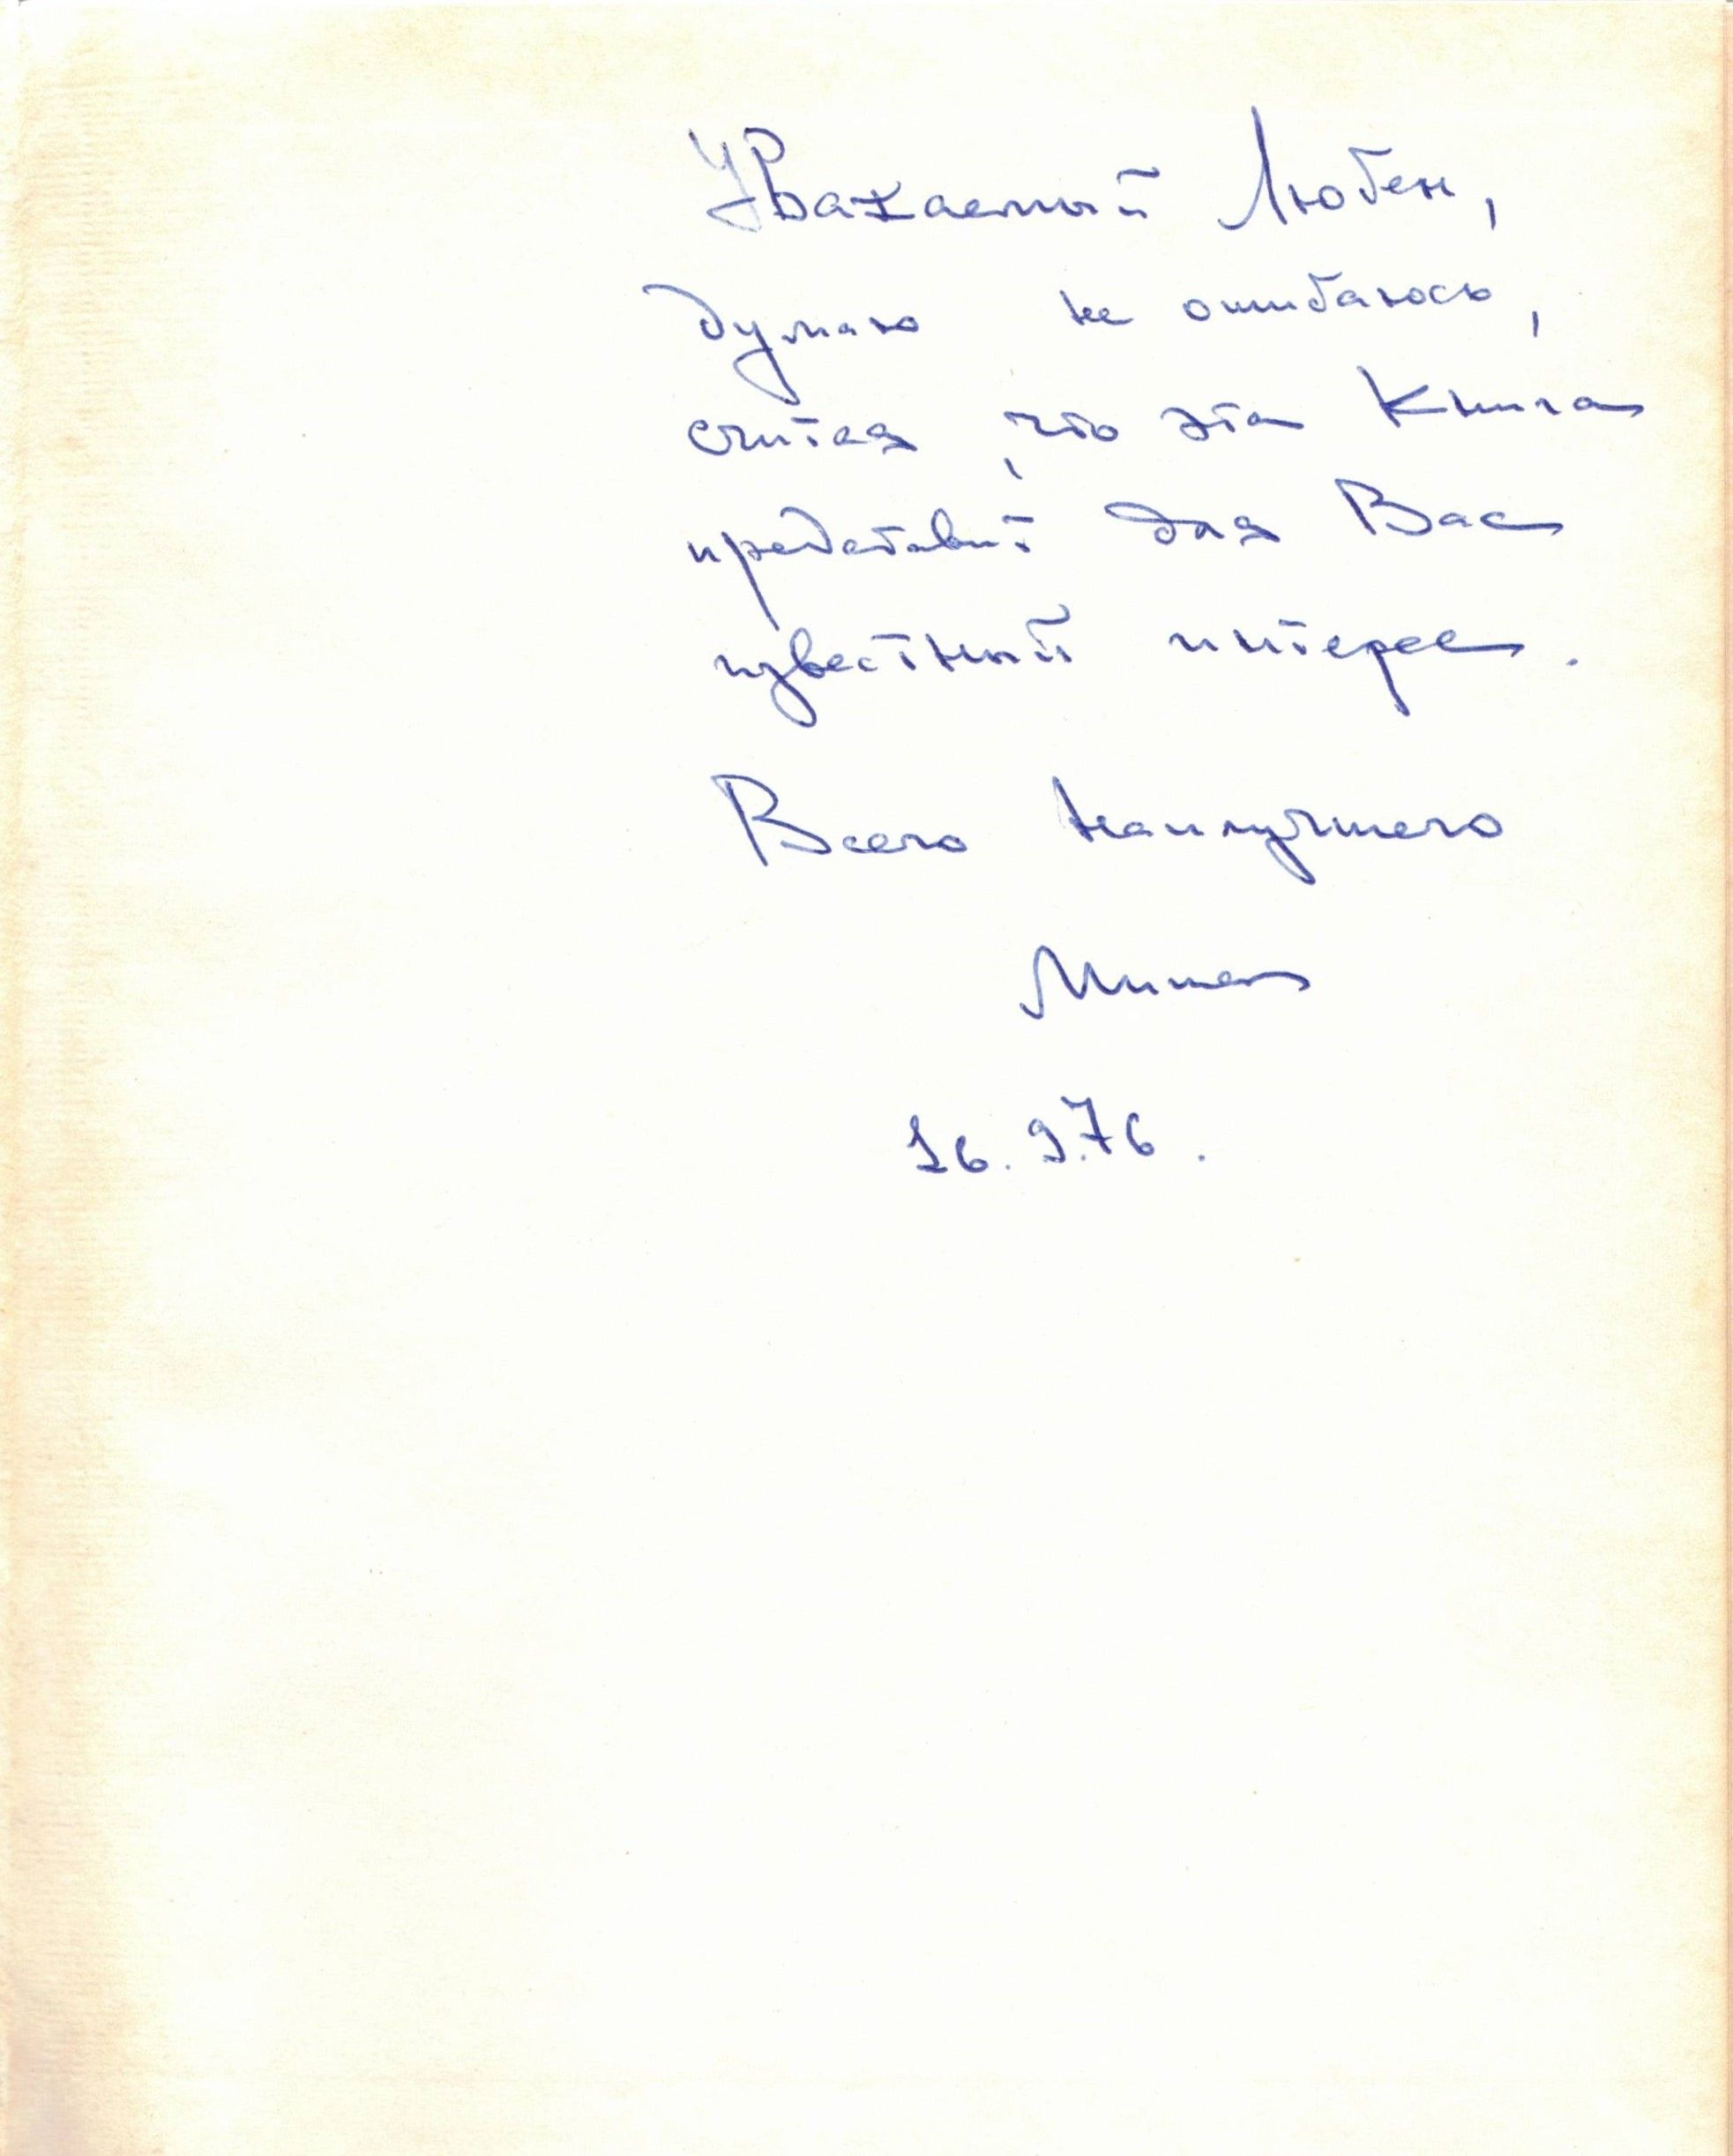 Уважаемый Любен,
думаю не ошибаюсь,
считая, что эта книга
представит для Вас
известный интерес.
Всего наилучшего
Миша
16.9.76.